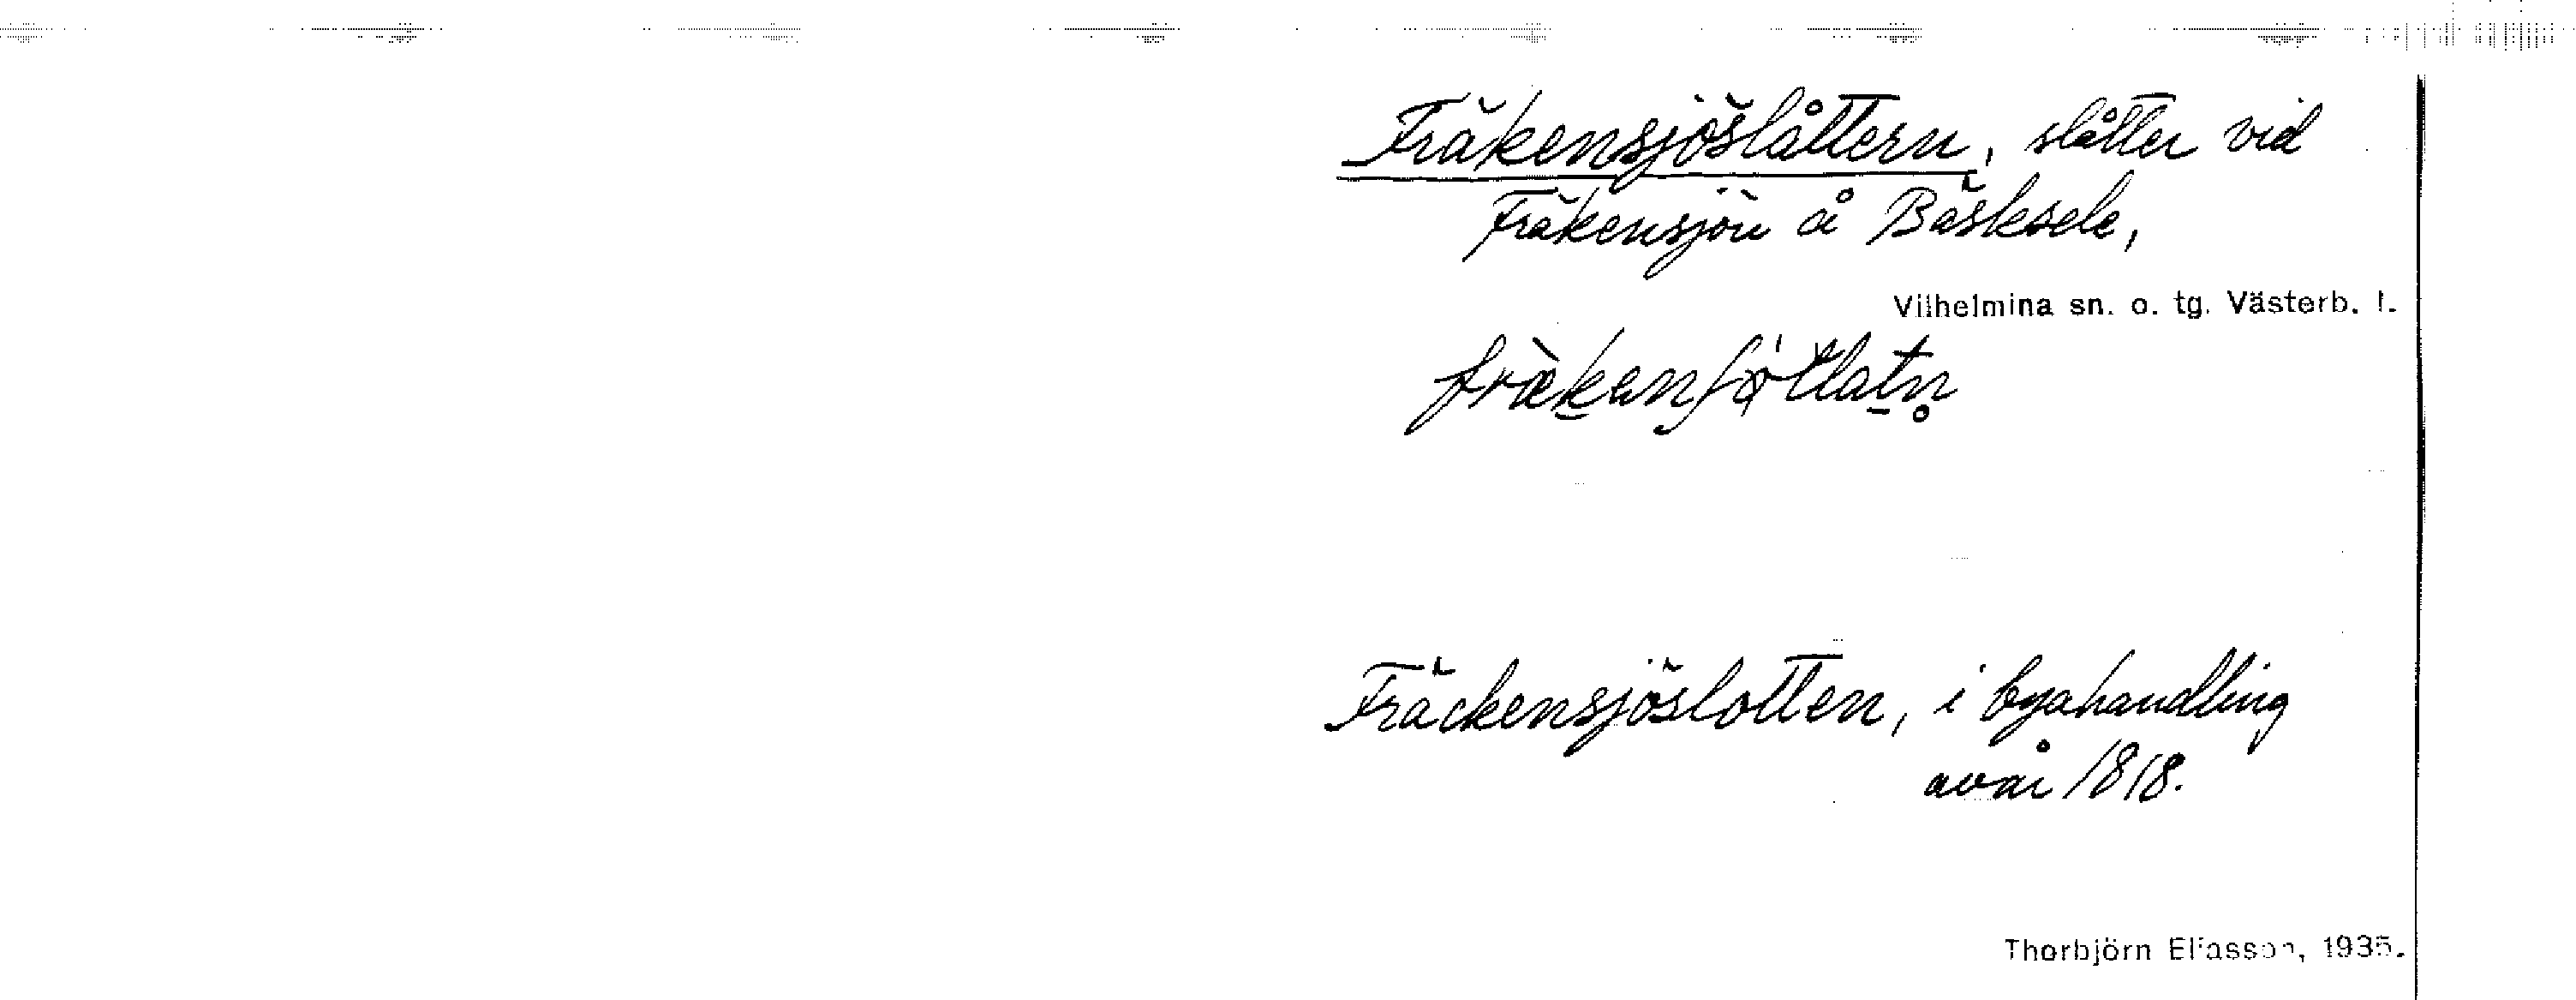 Fräkensjöslåttern, slåtter vid
Fräkensjön å Bäsksele,
Vilhelmina sn. o. tg. Västerb. l.
Fräckensjöslotten, i byahandling
av år 1818.
Thorbjörn Eliasson, 1935.